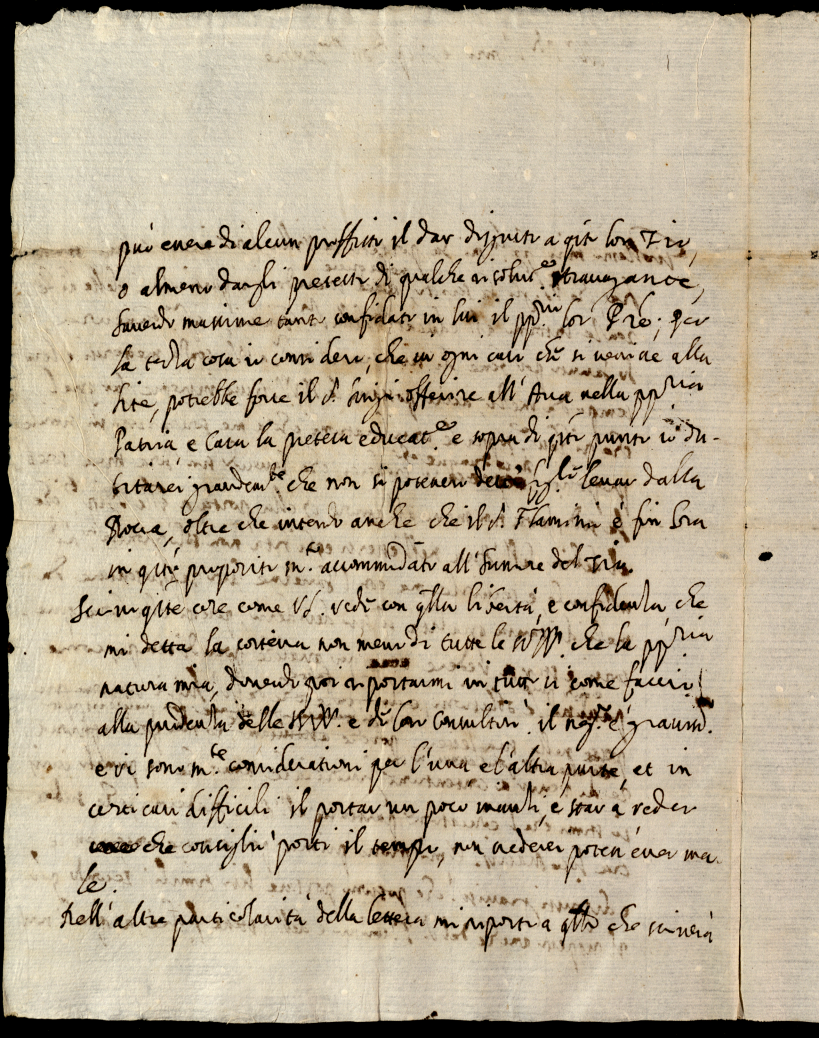 può essere di alcun proffitto il dar disgusto a q.to lor Zio,
o almeno dargli pretesto di qualche risolut.e stravagante,
havendo massime tanto confidato in lui il pp.rio lor P're; per
la terza cosa io considero, che in ogni caso ch'e si venisse alla
lite, potrebbe forse il s.r Luigi offerire all' Ava nella pp.ria
Patria, e Casa la pretesa educat.e e sopra di q.to punto io du-
bitarei grandem.te che non si potessero levar dalla
Nova, oltre che intendo anche che il s.r Flaminio è fin hora
in q.to proposito m.to accommodato all' humore del Zio.
Scrivo q.te cose come Vd. vede con q.lla libertà, e confidenza, che
mi detta la cortesia non meno di tutte le SS.VV. che la pp.ria
natura mia, dovendo poi riportarmi in tutto si come faccio
alla prudenza delle SS.VV. e de' loro Consultori. il neg.o è graviss.o
e vi sono m.te considerationi per l'una e l'altra parte, et in
certi casi difficili il portar un poco inanti, e star a veder
che consiglio porti il tempo, non vederei potess' esser ma-
le.
Nell' altre particolarità della lettera mi riporto a q.llo che scriverà